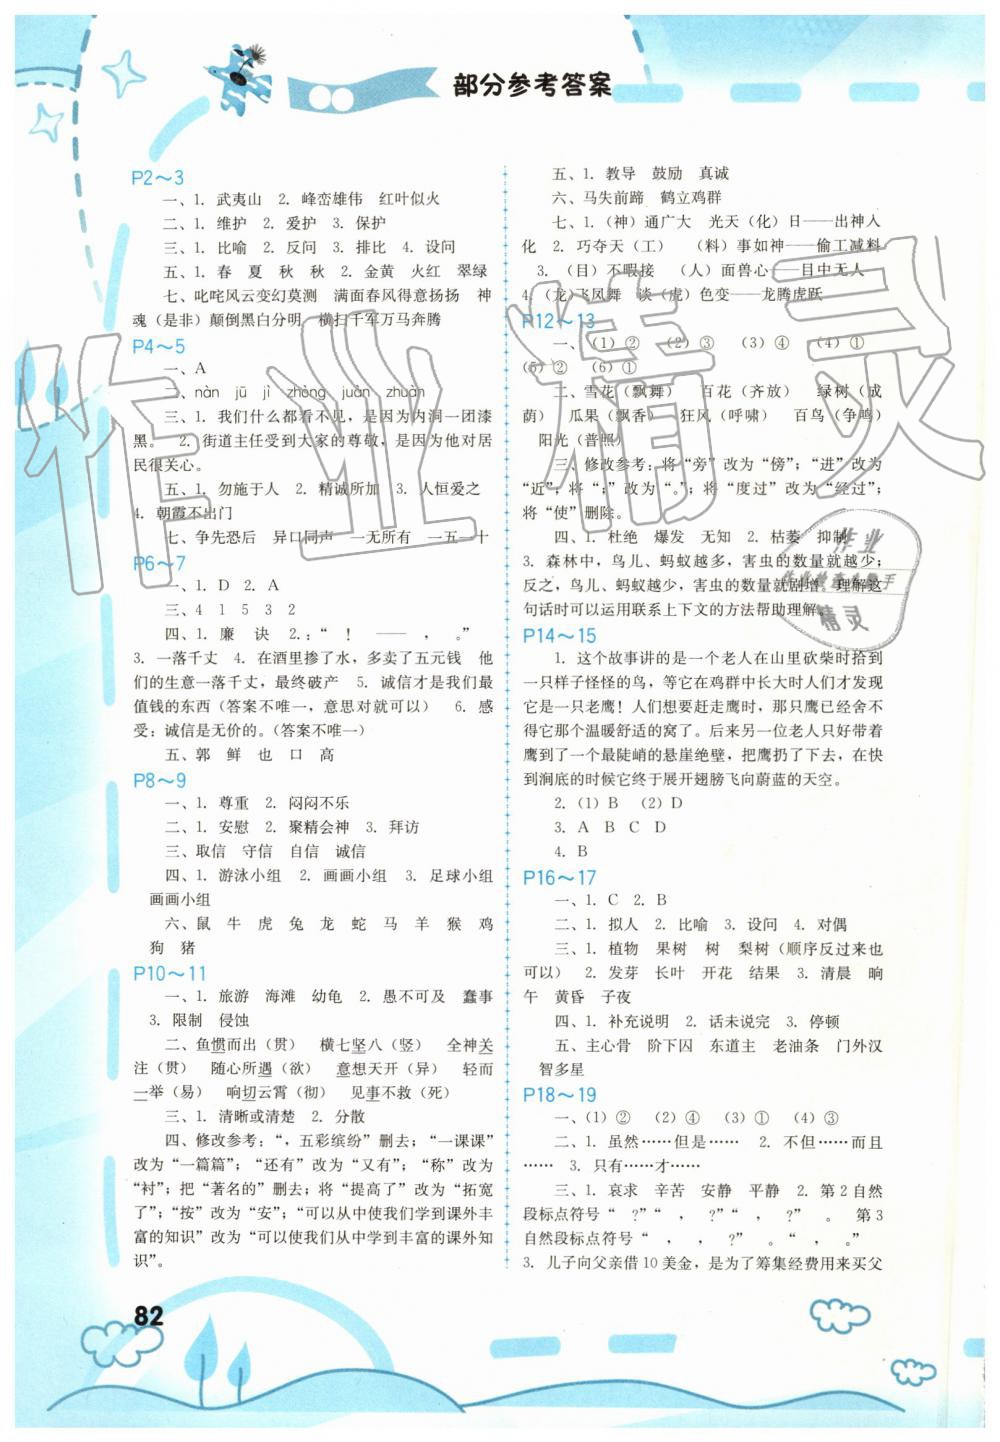 部分参考答案
P2～3
一、1. 武夷山　2. 峰峦雄伟　红叶似火
二、1. 维护　2. 爱护　3. 保护
三、1. 比喻　2. 反问　3. 排比　4. 设问
五、1. 春　夏　秋　秋　2. 金黄　火红　翠绿
七、叱咤风云变幻莫测　满面春风得意扬扬　神
魂（是非）颠倒黑白分明　横扫千军万马奔腾
P4～5
一、A
二、nàn　jū　jì　zhòng　juàn　zhuàn
三、1. 我们什么都看不见，是因为内洞一团漆
黑。　2. 街道主任受到大家的尊敬，是因为他对居
民很关心。
五、1. 勿施于人　2. 精诚所加　3. 人恒爱之
4. 朝霞不出门
七、争先恐后　异口同声　一无所有　一五一十
P6～7
一、1. D　2. A
三、4　1　5　3　2
四、1. 廉　诀　2.：“　！　——　，　。”
3. 一落千丈　4. 在酒里掺了水，多卖了五元钱　他
们的生意一落千丈，最终破产　5. 诚信才是我们最
值钱的东西（答案不唯一，意思对就可以）　6. 感
受：诚信是无价的。（答案不唯一）
五、郭　鲜　也　口　高
P8～9
一、1. 尊重　2. 闷闷不乐
二、1. 安慰　2. 聚精会神　3. 拜访
三、取信　守信　自信　诚信
四、1. 游泳小组　2. 画画小组　3. 足球小组
画画小组
六、鼠　牛　虎　兔　龙　蛇　马　羊　猴　鸡
狗　猪
P10～11
一、1. 旅游　海滩　幼龟　2. 愚不可及　蠢事
3. 限制　侵蚀
二、鱼惯而出（贯）　横七坚八（竖）　全神关
注（贯）　随心所遇（欲）　意想天开（异）　轻而
一举（易）　响切云霄（彻）　见事不救（死）
三、1. 清晰或清楚　2. 分散
四、修改参考：“，五彩缤纷”删去；“一课课”
改为“一篇篇”；“还有”改为“又有”；“称”改为
“衬”；把“著名的”删去；将“提高了”改为“拓宽
了”；“按”改为“安”；“可以从中使我们学到课外丰
富的知识”改为“可以使我们从中学到丰富的课外知
识”。
五、1. 教导　鼓励　真诚
六、马失前蹄　鹤立鸡群
七、1.（神）通广大　光天（化）日——出神入
化　2. 巧夺天（工）　（料）事如神——偷工减料
3.（目）不暇接　（人）面兽心——目中无人
4.（龙）飞凤舞　谈（虎）色变——龙腾虎跃
P12～13
一、（1）②　（2）③　（3）④　（4）①
（5）②　（6）①
二、雪花（飘舞）　百花（齐放）　绿树（成
荫）　瓜果（飘香）　狂风（呼啸）　百鸟（争鸣）
阳光（普照）
三、修改参考：将“旁”改为“傍”；“进”改为
“近”；将“；”改为“。”；将“度过”改为“经过”；
将“使”删除。
四、1. 杜绝　爆发　无知　2. 枯萎　抑制
3. 森林中，鸟儿、蚂蚁越多，害虫的数量就越少；
反之，鸟儿、蚂蚁越少，害虫的数量就剧增。理解这
句话时可以运用联系上下文的方法帮助理解。
P14～15
1. 这个故事讲的是一个老人在山里砍柴时拾到
一只样子怪怪的鸟，等它在鸡群中长大时人们才发现
它是一只老鹰！人们想要赶走鹰时，那只鹰已经舍不
得这个温暖舒适的窝了。后来另一位老人只好带着
鹰到了一个最陡峭的悬崖绝壁，把鹰扔了下去，在快
到涧底的时候它终于展开翅膀飞向蔚蓝的天空。
2.（1）B　（2）D
3. A　B　C　D
4. B
P16～17
一、1. C　2. B
二、1. 拟人　2. 比喻　3. 设问　4. 对偶
三、1. 植物　果树　树　梨树（顺序反过来也
可以）　2. 发芽　长叶　开花　结果　3. 清晨　晌
午　黄昏　子夜
四、1. 补充说明　2. 话未说完　3. 停顿
五、主心骨　阶下囚　东道主　老油条　门外汉
智多星
P18～19
一、（1）②　（2）④　（3）①　（4）③
二、1. 虽然……但是……　2. 不但……而且
……　3. 只有……才……
三、1. 哀求　辛苦　安静　平静　2. 第 2 自然
段标点符号“　？”“　，　？”“　，　？”　。　第 3
自然段标点符号“　，　，　？”　。“　，　。”
3. 儿子向父亲借 10 美金，是为了筹集经费用来买父
82
作业精灵
作业
精灵